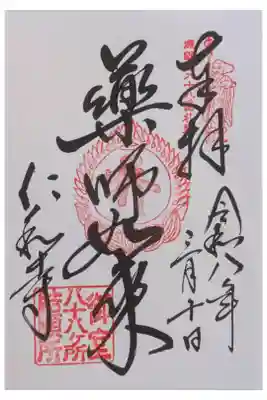 奉拝
令和八年
三月十日
薬師如来
仁和寺
御室
八十八ヶ所